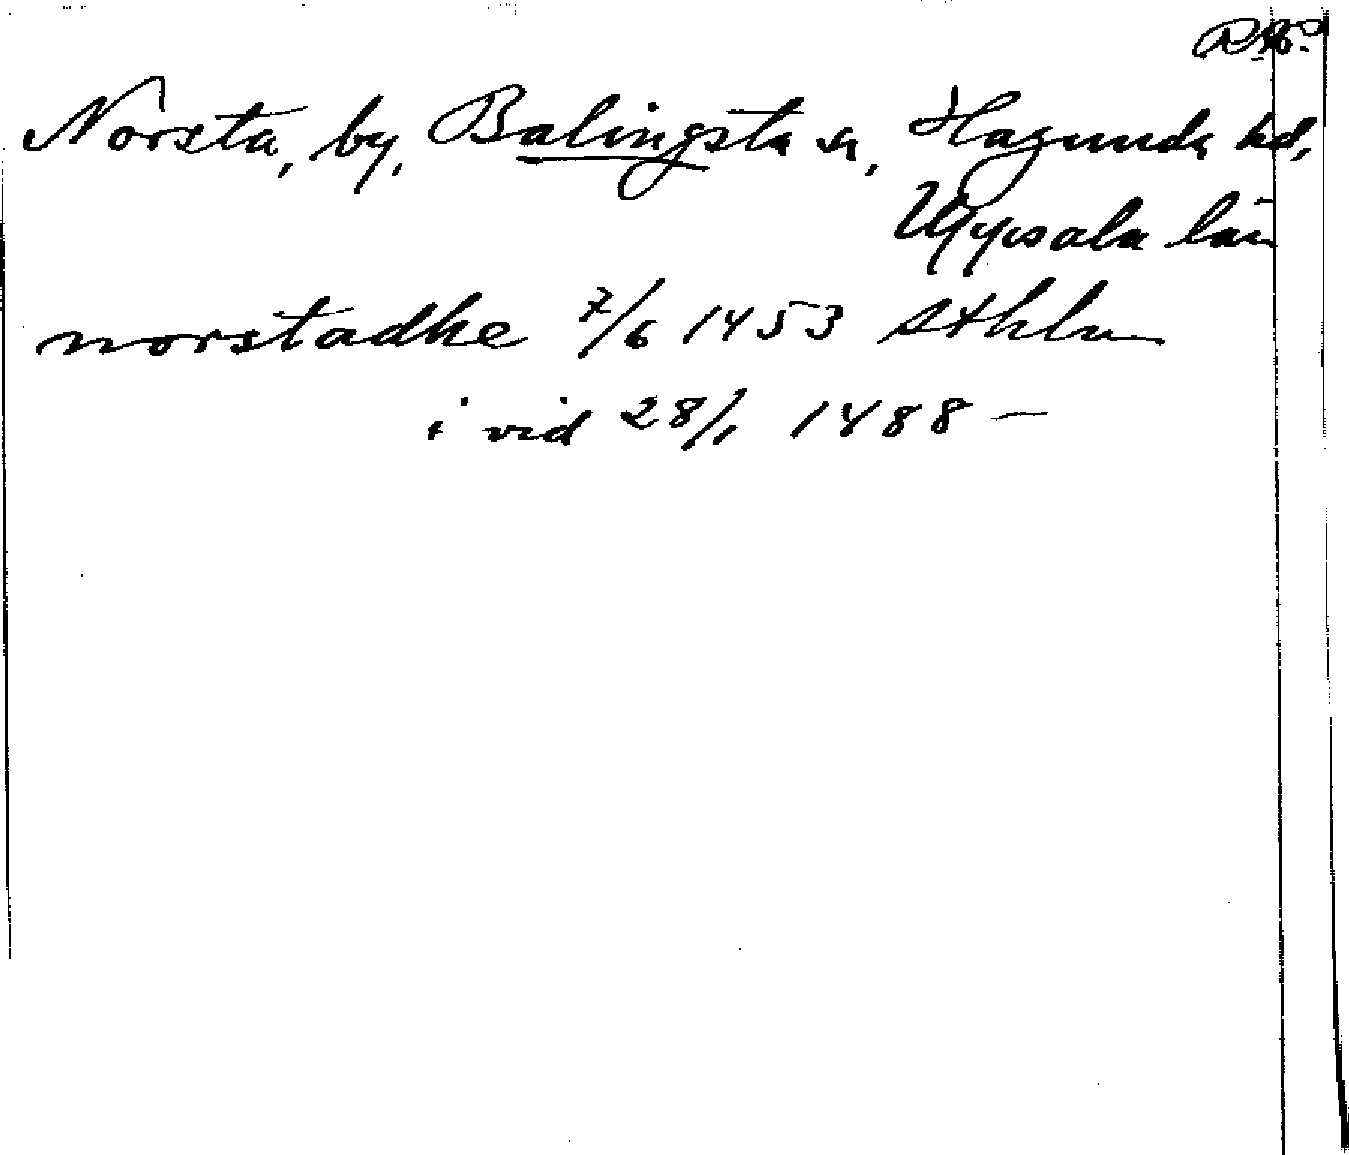 RAP
Norsta, by, Balingsta sn, Hagunda hd,
Uppsala län
norstadhe 7/6 1453 Sthlm
i vid 28/1 1488 —